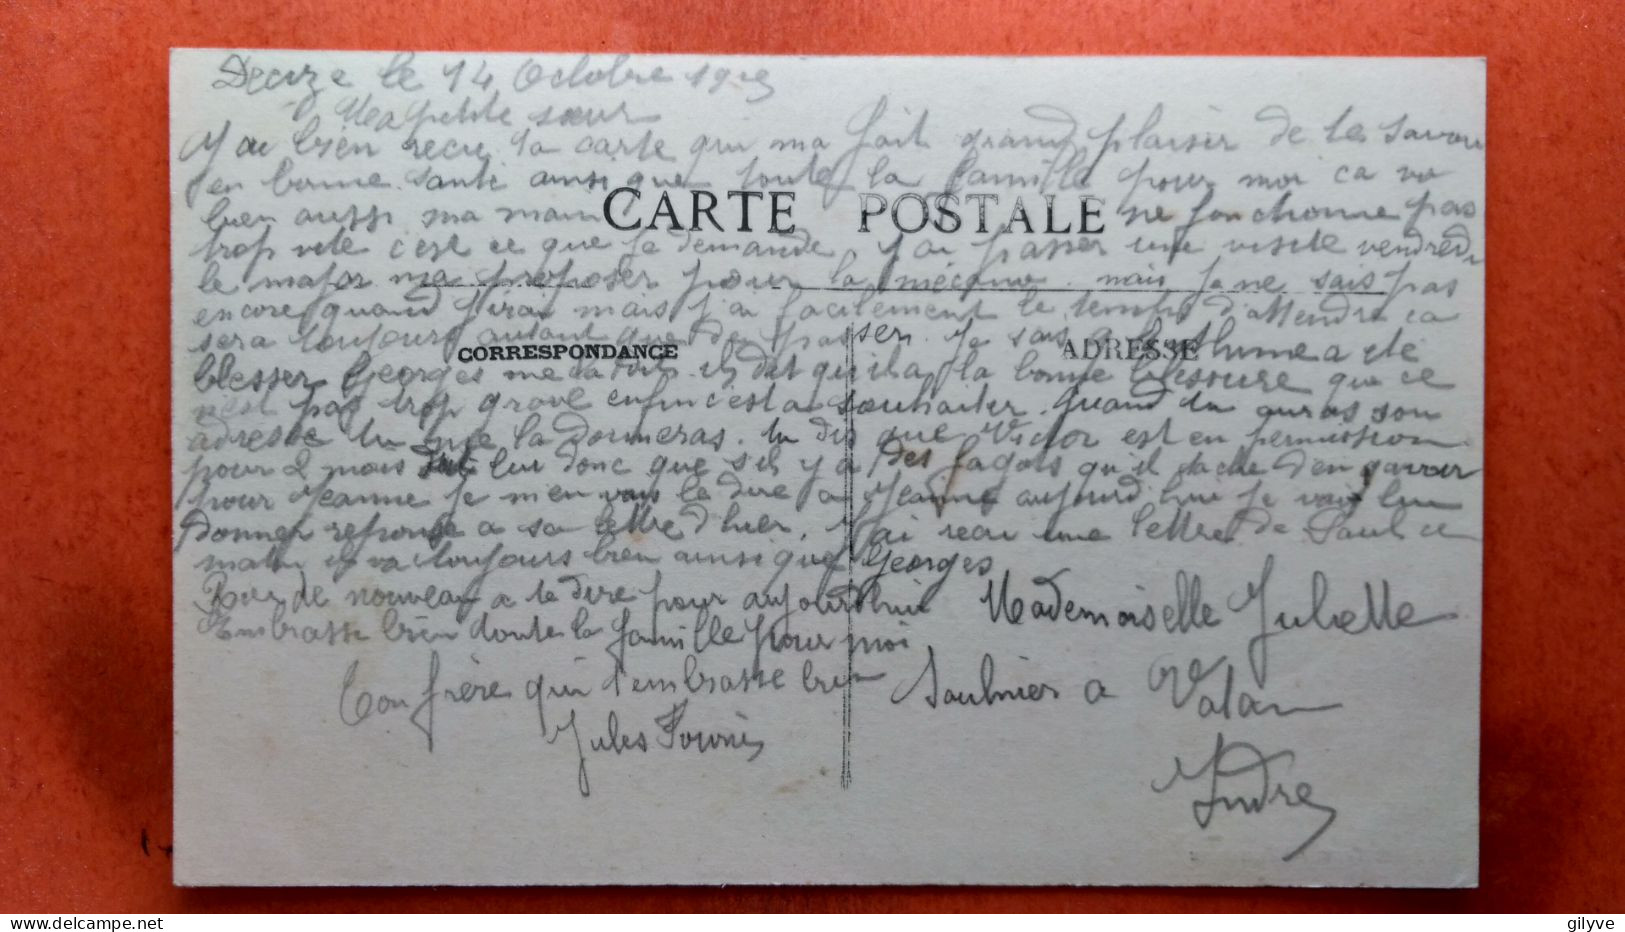 Decize le 14 Octobre 1915
Ma petite sœur
J'ai bien recu ta carte qui ma fait grand plaisir de te savoir
en bonne santé ainsi que toute la famille pour moi ca va
bien aussi ma main ne fonctionne pas
CARTE POSTALE
trop vite c'est ce que je demande j'ai passer une visite vendredi
le major ma proposer pour la mécano mais je ne sais pas
encore quand j'irai mais j'ai facilement le temps d'attendre ca
sera toujours autant que de passer. Je sais a été
CORRESPONDANCE
ADRESSE
blesser Georges me la dit il dit qu'il a la bonne blessure que ce
n'est pas trop grave enfin c'est a souhaiter. Quand tu auras son
adresse tu me la donneras. tu dis que Victor est en permission
pour 2 mois dit lui donc que s'il y a des fagots qu'il tache d'en avoir
pour Jeanne je m'en vais le dire a Jeanne aujourd'hui je vais lui
donner reponse a sa lettre d'hier. J'ai recu une lettre de Paul ce
matin il va toujours bien ainsi que Georges
Rien de nouveau a te dire pour aujourd'hui
Embrasse bien toute la famille pour moi
Ton frère qui t'embrasse bien
Jules
Mademoiselle Juliette
Saulnier a Vatan
Indre
gilyve